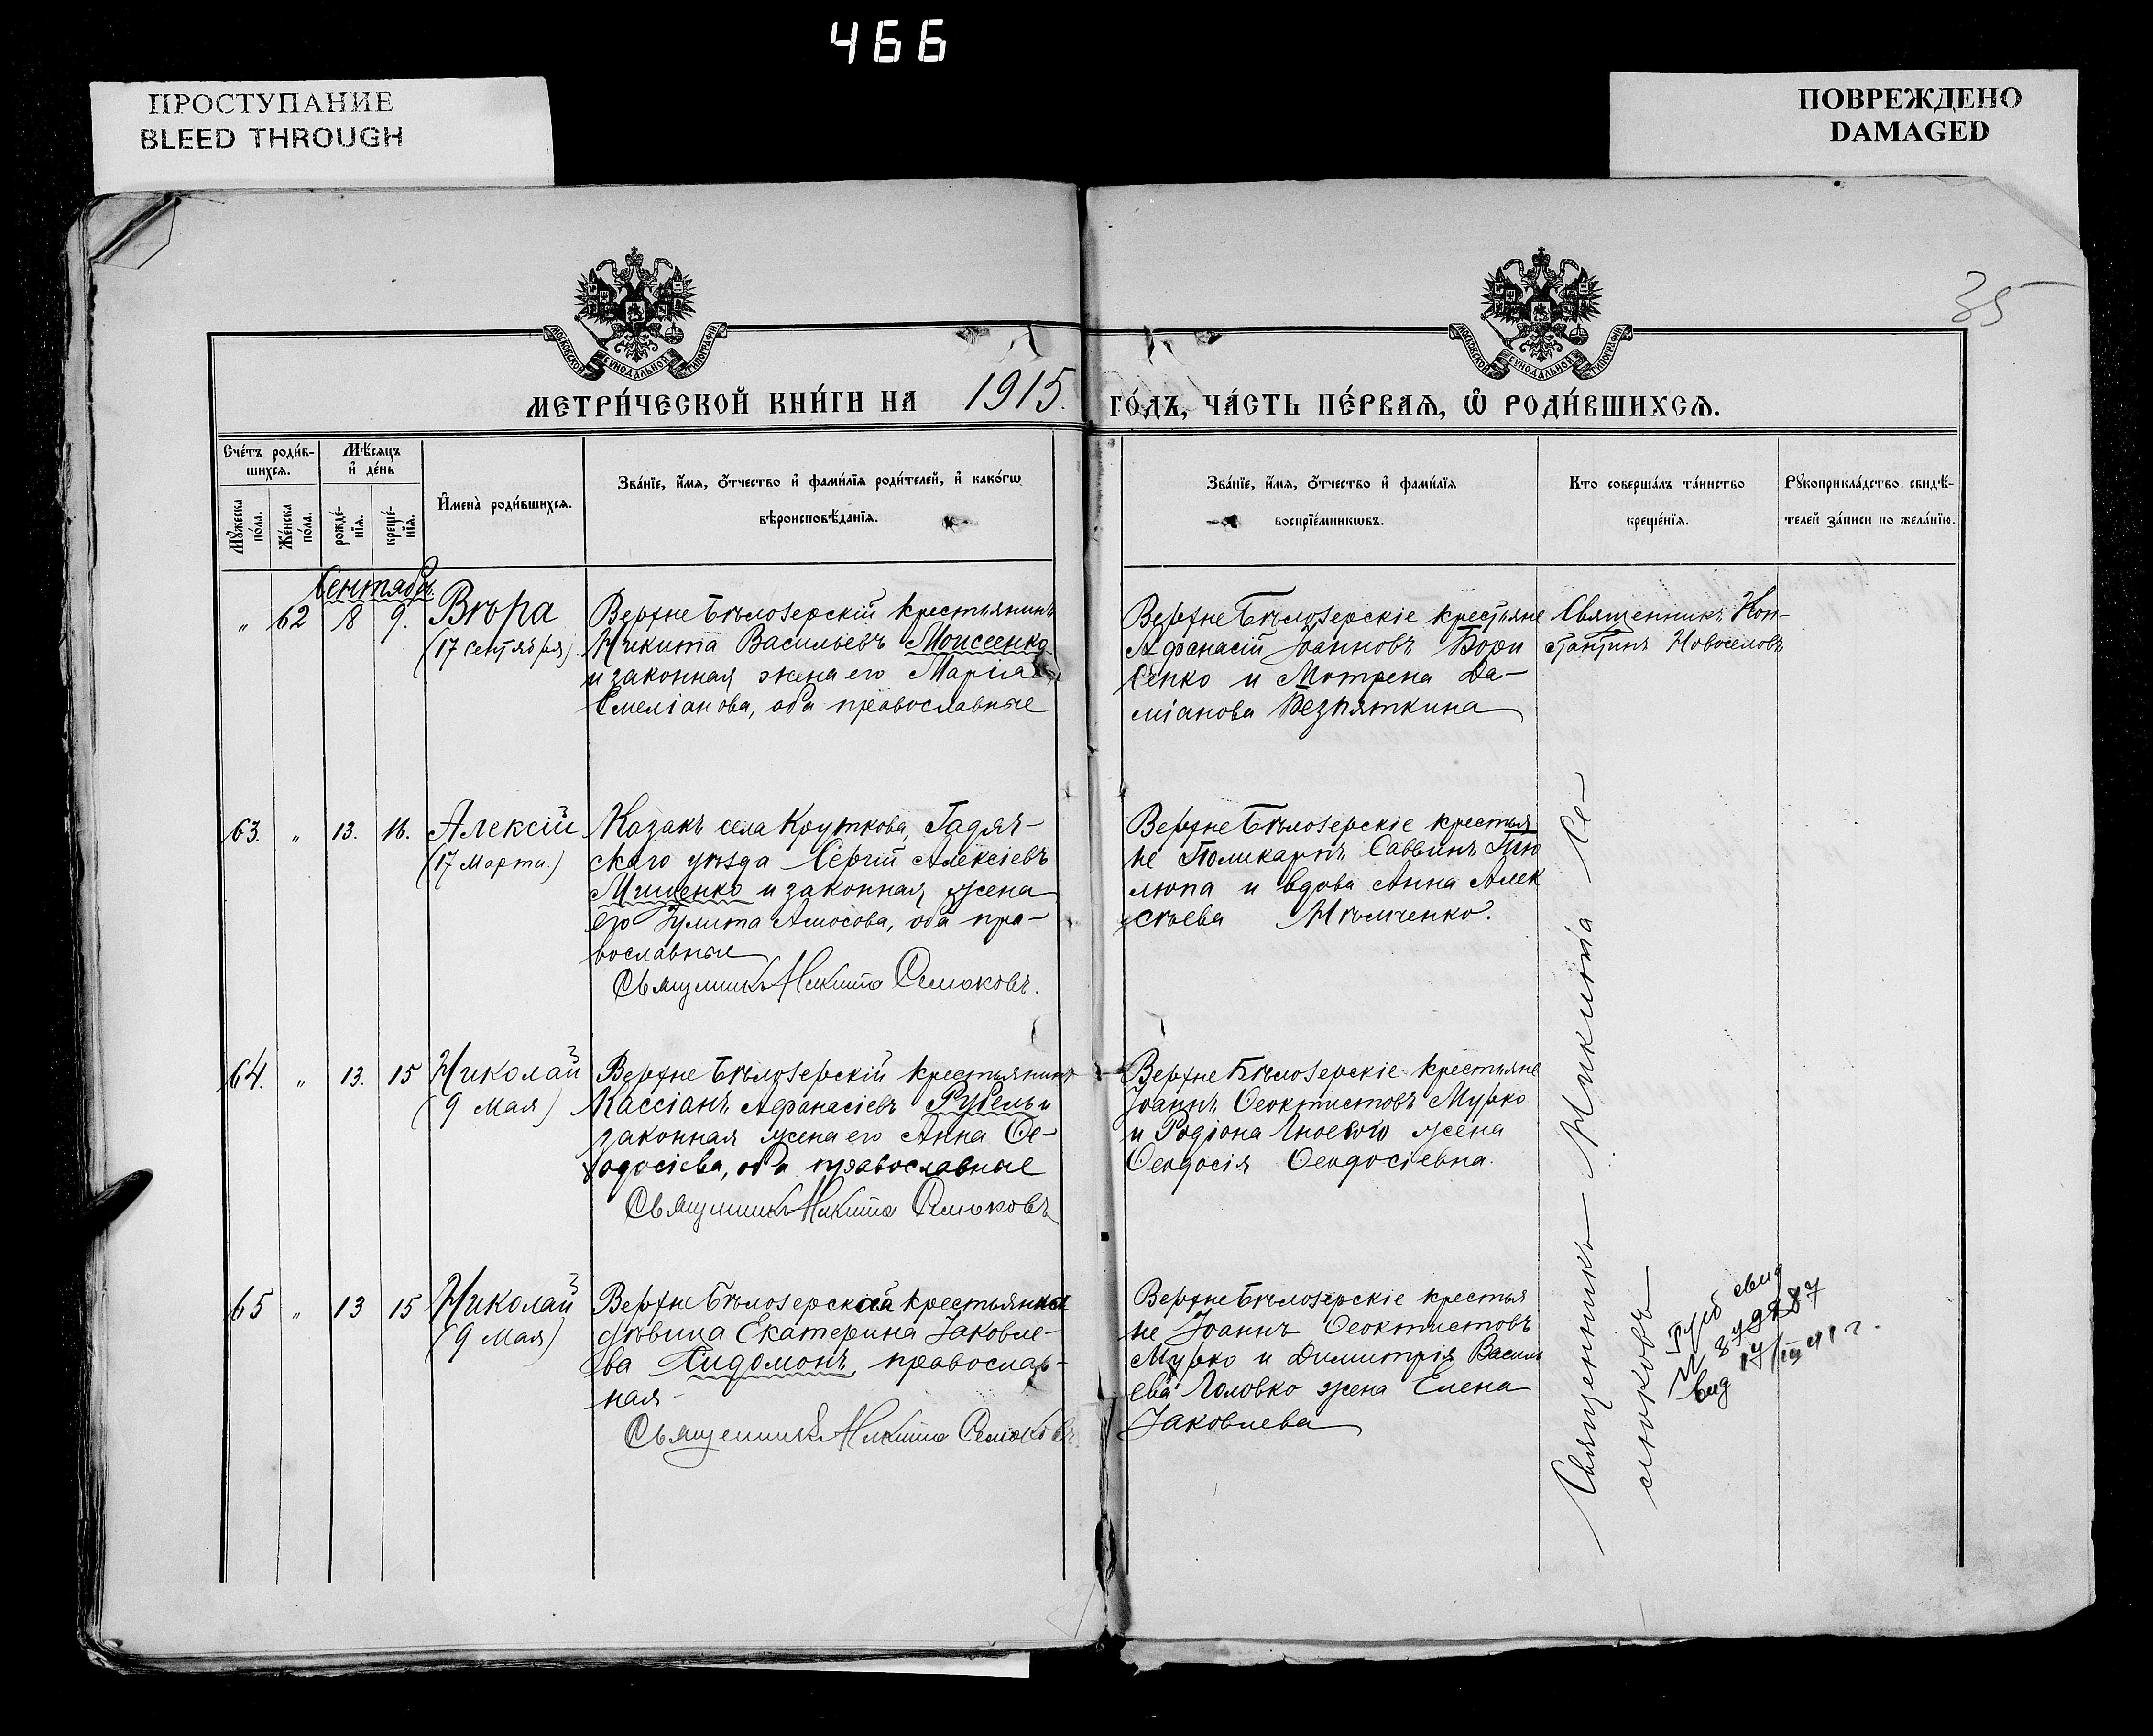 466
ПРОСТУПАНИЕ
BLEED THROUGH
ПОВРЕЖДЕНО
DAMAGED
35
МОСКОВСКОЙ СѴНОДАЛЬНОЙ ТИПОГРАФІИ
МОСКОВСКОЙ СѴНОДАЛЬНОЙ ТИПОГРАФІИ
МЕТРИ́ЧЕСКОЙ КНИ́ГИ НА 1915. ГО́ДЪ, ЧА́СТЬ ПЕ́РВАѦ, Ѡ҆ РОДИ́ВШИХСѦ.
Сче́тъ роди́в-
шихсѧ.
Мꙋ́жеска
по́ла.
Же́нска
по́ла.
Мѣ́сѧцъ
и҆ де́нь
рожде́-
нїѧ.
креще́-
нїѧ.
И҆мена̀ роди́вшихсѧ.
Зва́нїе, и҆́мѧ, ѻ҆́тчество и҆ фами́лїѧ роди́телей, и҆ како́гѡ
вѣроисповѣ́данїѧ.
Зва́нїе, и҆́мѧ, ѻ҆́тчество и҆ фами́лїѧ
воспрїе́мникѡвъ.
Кто соверша́лъ та́инство
креще́нїѧ.
Рꙋкоприкла́дство свидѣ́-
телей за́писи по жела́нїю.
Сентябрь
" 62 8 9. Вѣра
(17 Сентября).
Верхне Бѣлозерскій крестьянинъ
Никита Васильевъ Моисеенко
и законная жена его Марія
Емеліанова, оба православные
Верхне Бѣлозерскіе крестьяне
Афанасій Іоанновъ Бори
сенко и Мотрена Да-
міанова Безпяткина
Священникъ Кон-
стантинъ Новоселовъ
63. " 13. 16. Алексій
(17 Марта.)
Казакъ села Круткова, Гадяч-
скаго уѣзда Сергій Алексіевъ
Мишенко и законная жена
его Іулита Амосова, оба пра-
вославные
Священникъ Никита Семюковъ.
Верхне Бѣлозерскіе крестья
не Поликарпъ Саввинъ Тю
люпа и вдова Анна Алек
сѣева Мѣлченко.
64. " 13. 15 Николай
(9 Мая)
Верхне Бѣлозерскій крестьянинъ
Кассіанъ Афанасіевъ Рубель и
законная жена его Анна Ѳе-
одосіева, оба православные
Священникъ Никита Семюковъ
Верхне Бѣлозерскіе крестьяне
Іоаннъ Ѳеоктистовъ Мурко
и Родіона Гноевого жена
Ѳеодосія Ѳеодосіевна.
65 " 13 15 Николай
(9 Мая)
Верхне Бѣлозерская крестьянка
дѣвица Екатерина Іаковле-
ва Лидомонъ, православ-
ная
Священникъ Никита Семюковъ
Верхне Бѣлозерскіе крестья
не Іоаннъ Ѳеоктистовъ
Мурко и Димитрія Василь
ева Головко жена Елена
Іаковлева
Священникъ Никита Се-
мюковъ